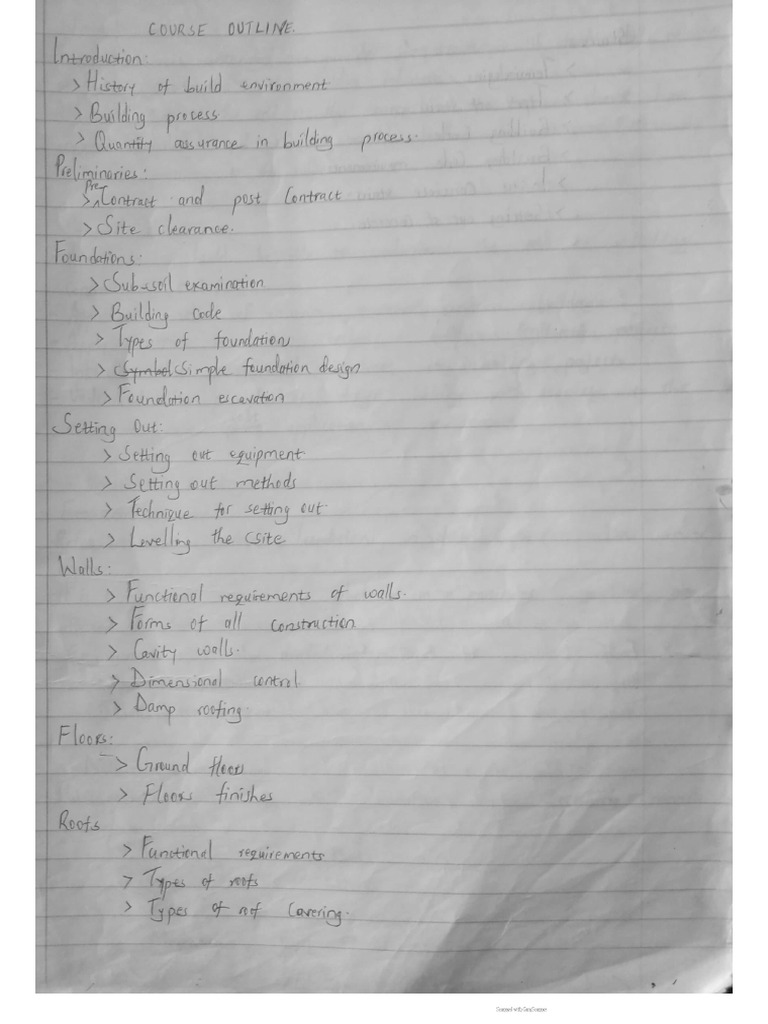 COURSE OUTLINE.
Introduction:
> History of build environment
> Building process
> Quantity assurance in building process.
Preliminaries:
> Pre Contract and post Contract
> Site clearance.
Foundations:
> Sub-soil examination
> Building code
> Types of foundation
> Symbol Simple foundation design
> Foundation escavation
Setting Out:
> Setting out equipment
> Setting out methods
> Technique for setting out.
> Levelling the site
Walls:
> Functional requirements of walls.
> Forms of all construction
> Cavity walls.
> Dimensional control.
> Damp roofing.
Floors:
> Ground floors
> Floors finishes
Roofs
> Functional requirements
> Types of roofs
> Types of rof Covering.
Scanned with CamScanner